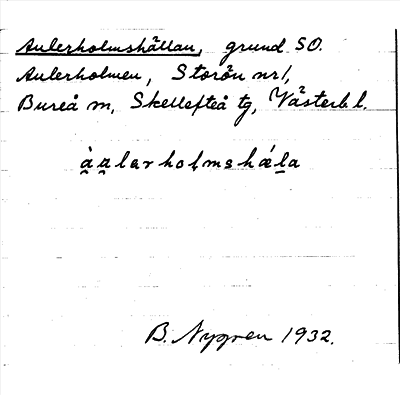 Aulerholmshällan, grund SO.
Aulerholmen, Storön nr 1,
Bureå sn, Skellefteå tg, Västerb l.
à̯a̯lɛrhoḷmsha̗ḻa
B. Nygren 1932.